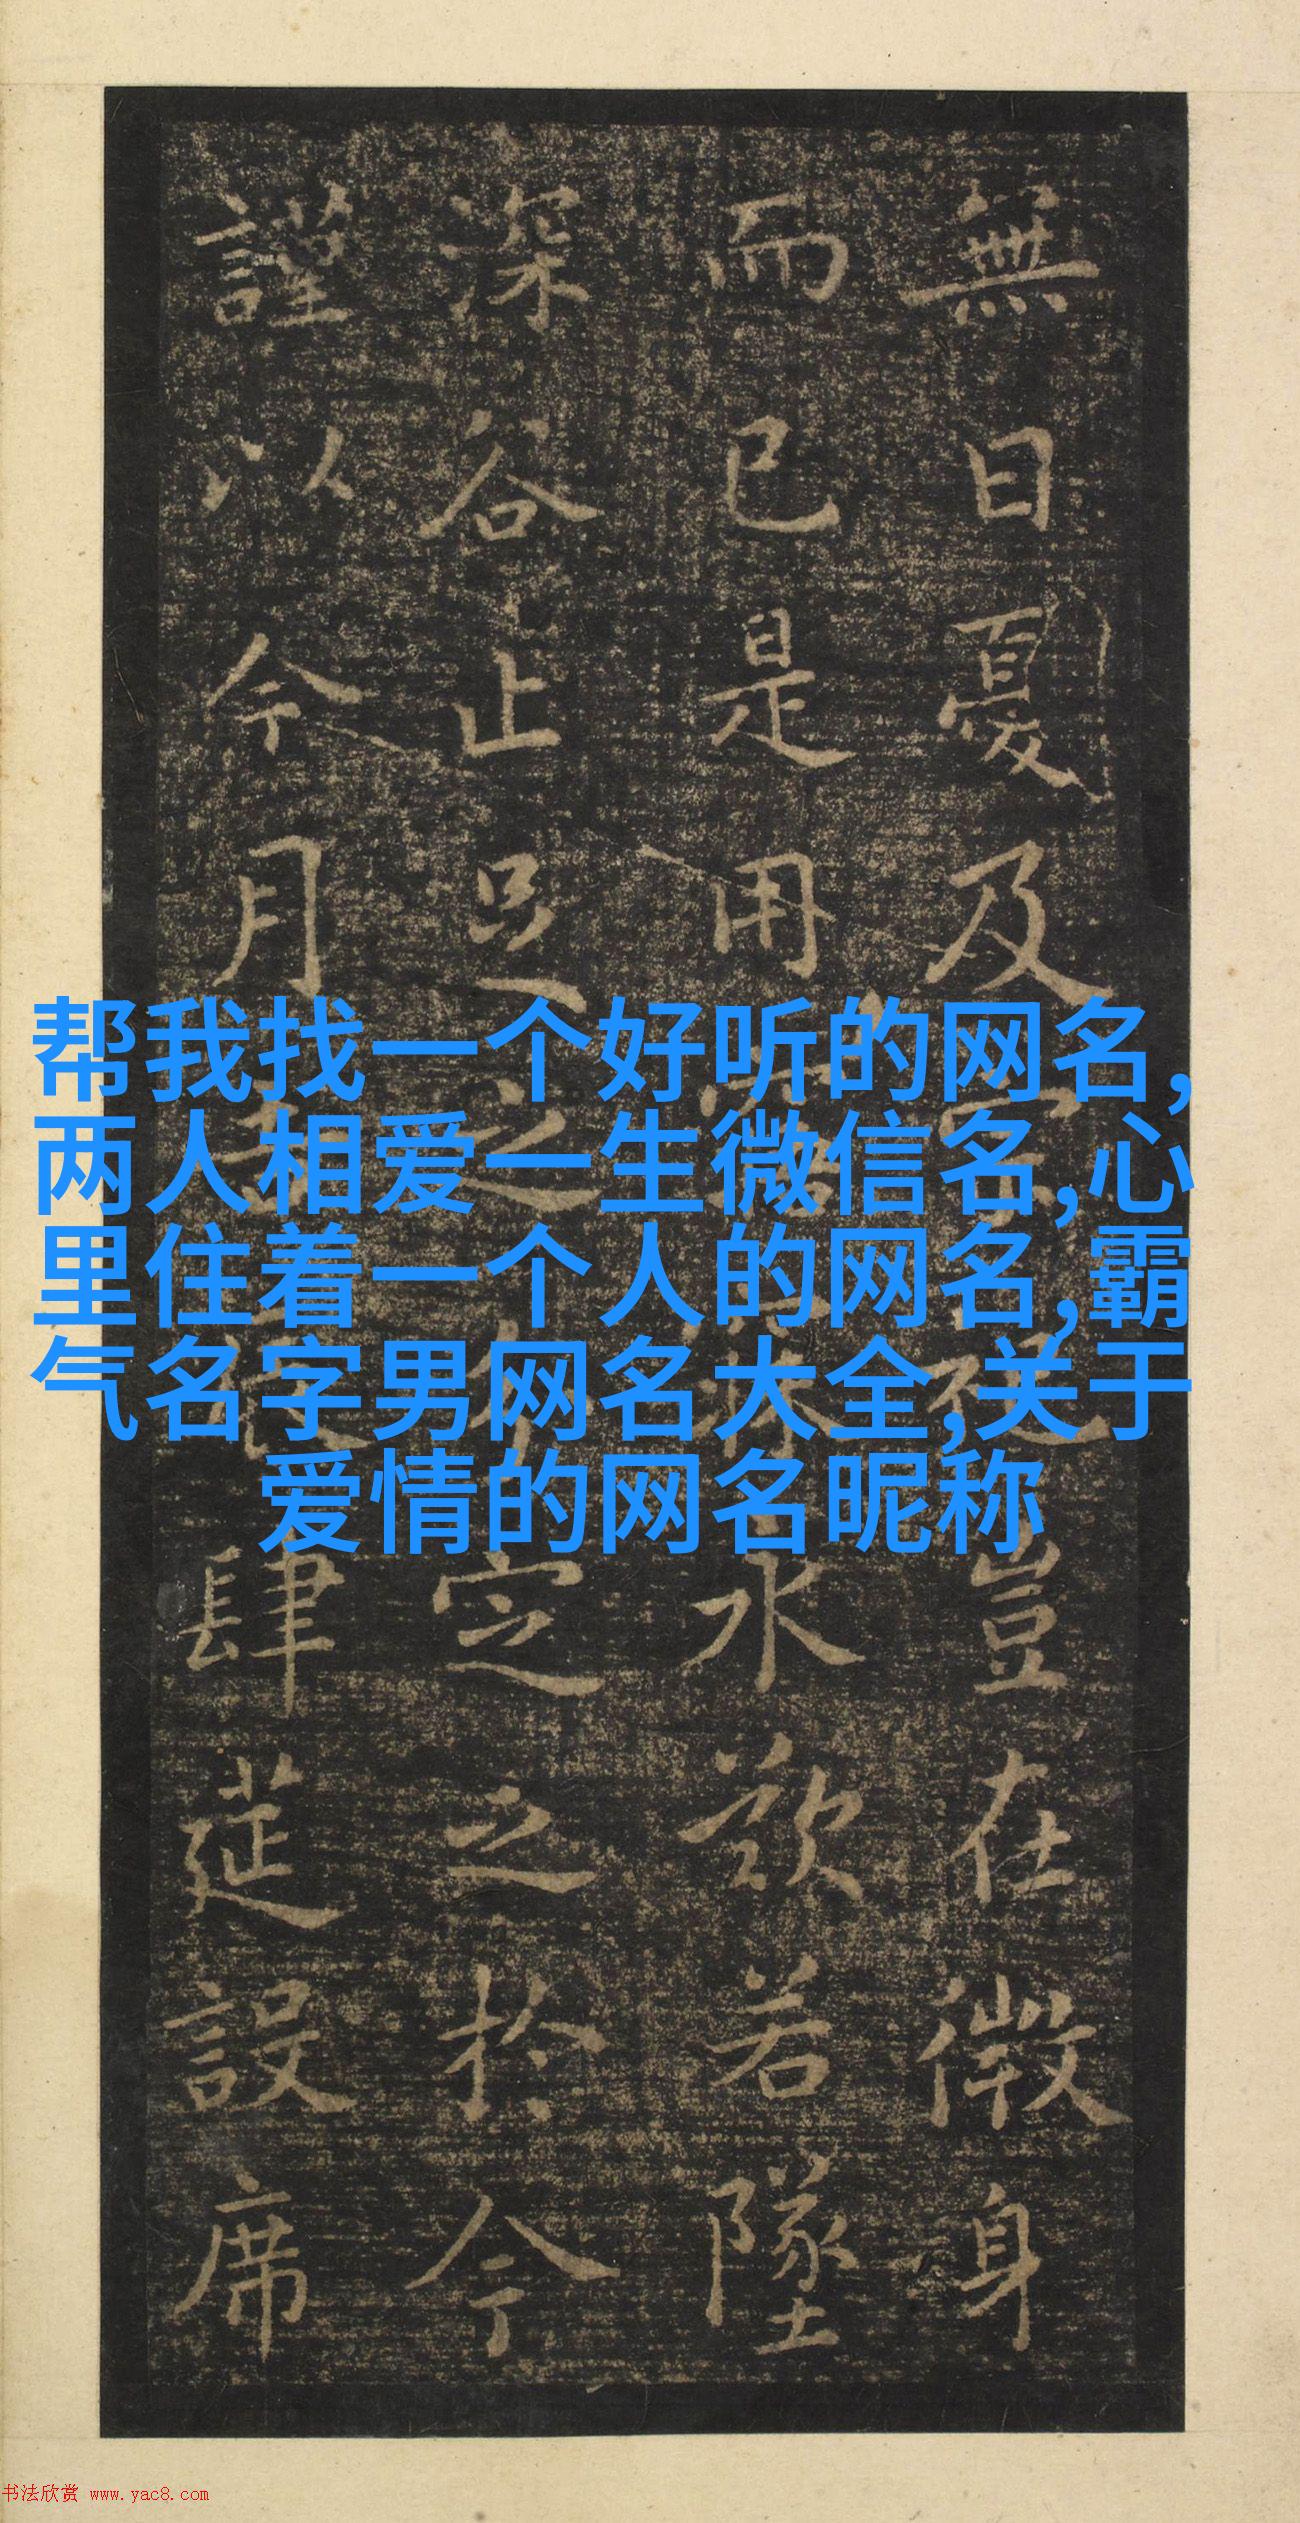 無日憂及豈在微身
而已是用水欲若墜
深谷止足之定之於今
謹以今月肆莚設席
帮我找一个好听的网名,
两人相爱一生微信名,心
里住着一个人的网名,霸
气名字男网名大全,关于
爱情的网名昵称
书法欣赏 www.yac8.com